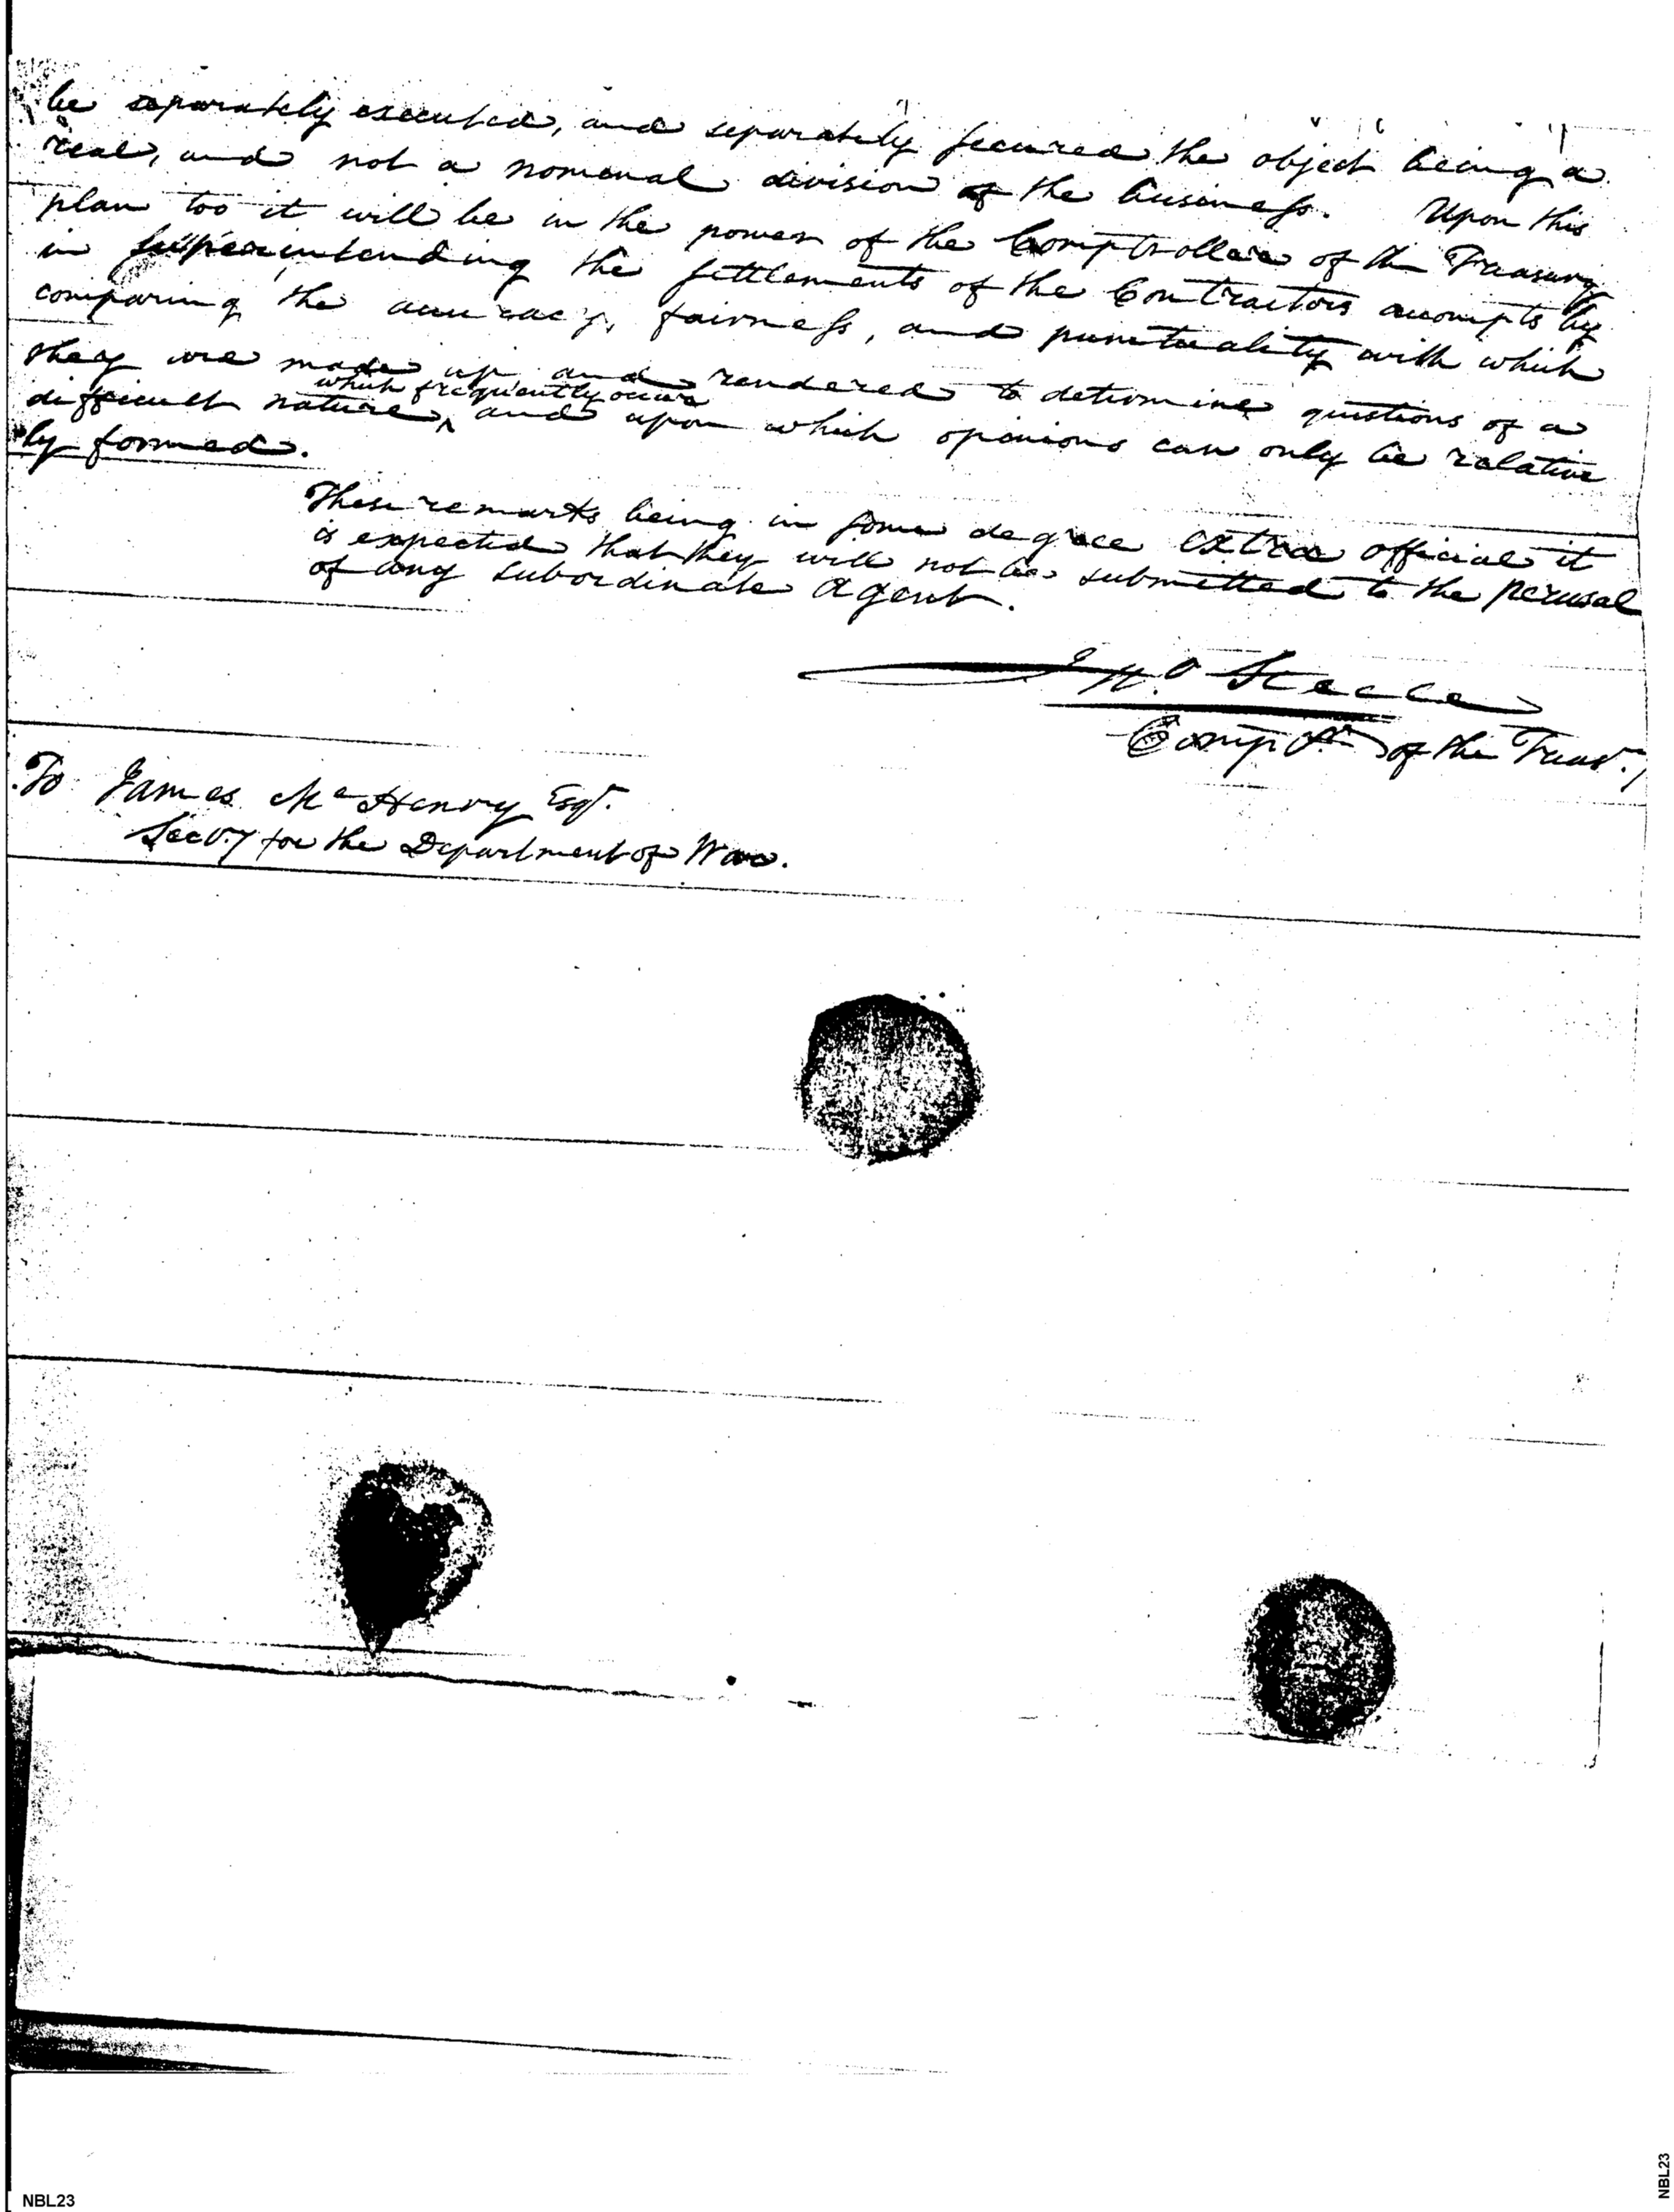 be separately executed, and separately secured the object being a
real, and not a nomenal division of the business. Upon this
plan too it will be in the power of the Comptroller of the Treasury
in superintending the settlements of the Contractors accompts by
comparing the accuracy, fairness, and punctuality with which
they are made up and rendered to determine questions of a
which frequently occur
difficult nature, and upon which opinions can only be relative
ly formed.
These remarks being in some degree extra official it
is expected that they will not be submitted to the perusal
of any subordinate Agent.
Jno Steele
Comptr of the Treasy
To James McHenry Esqr.
Secry for the Department of War.
NBL23
NBL23